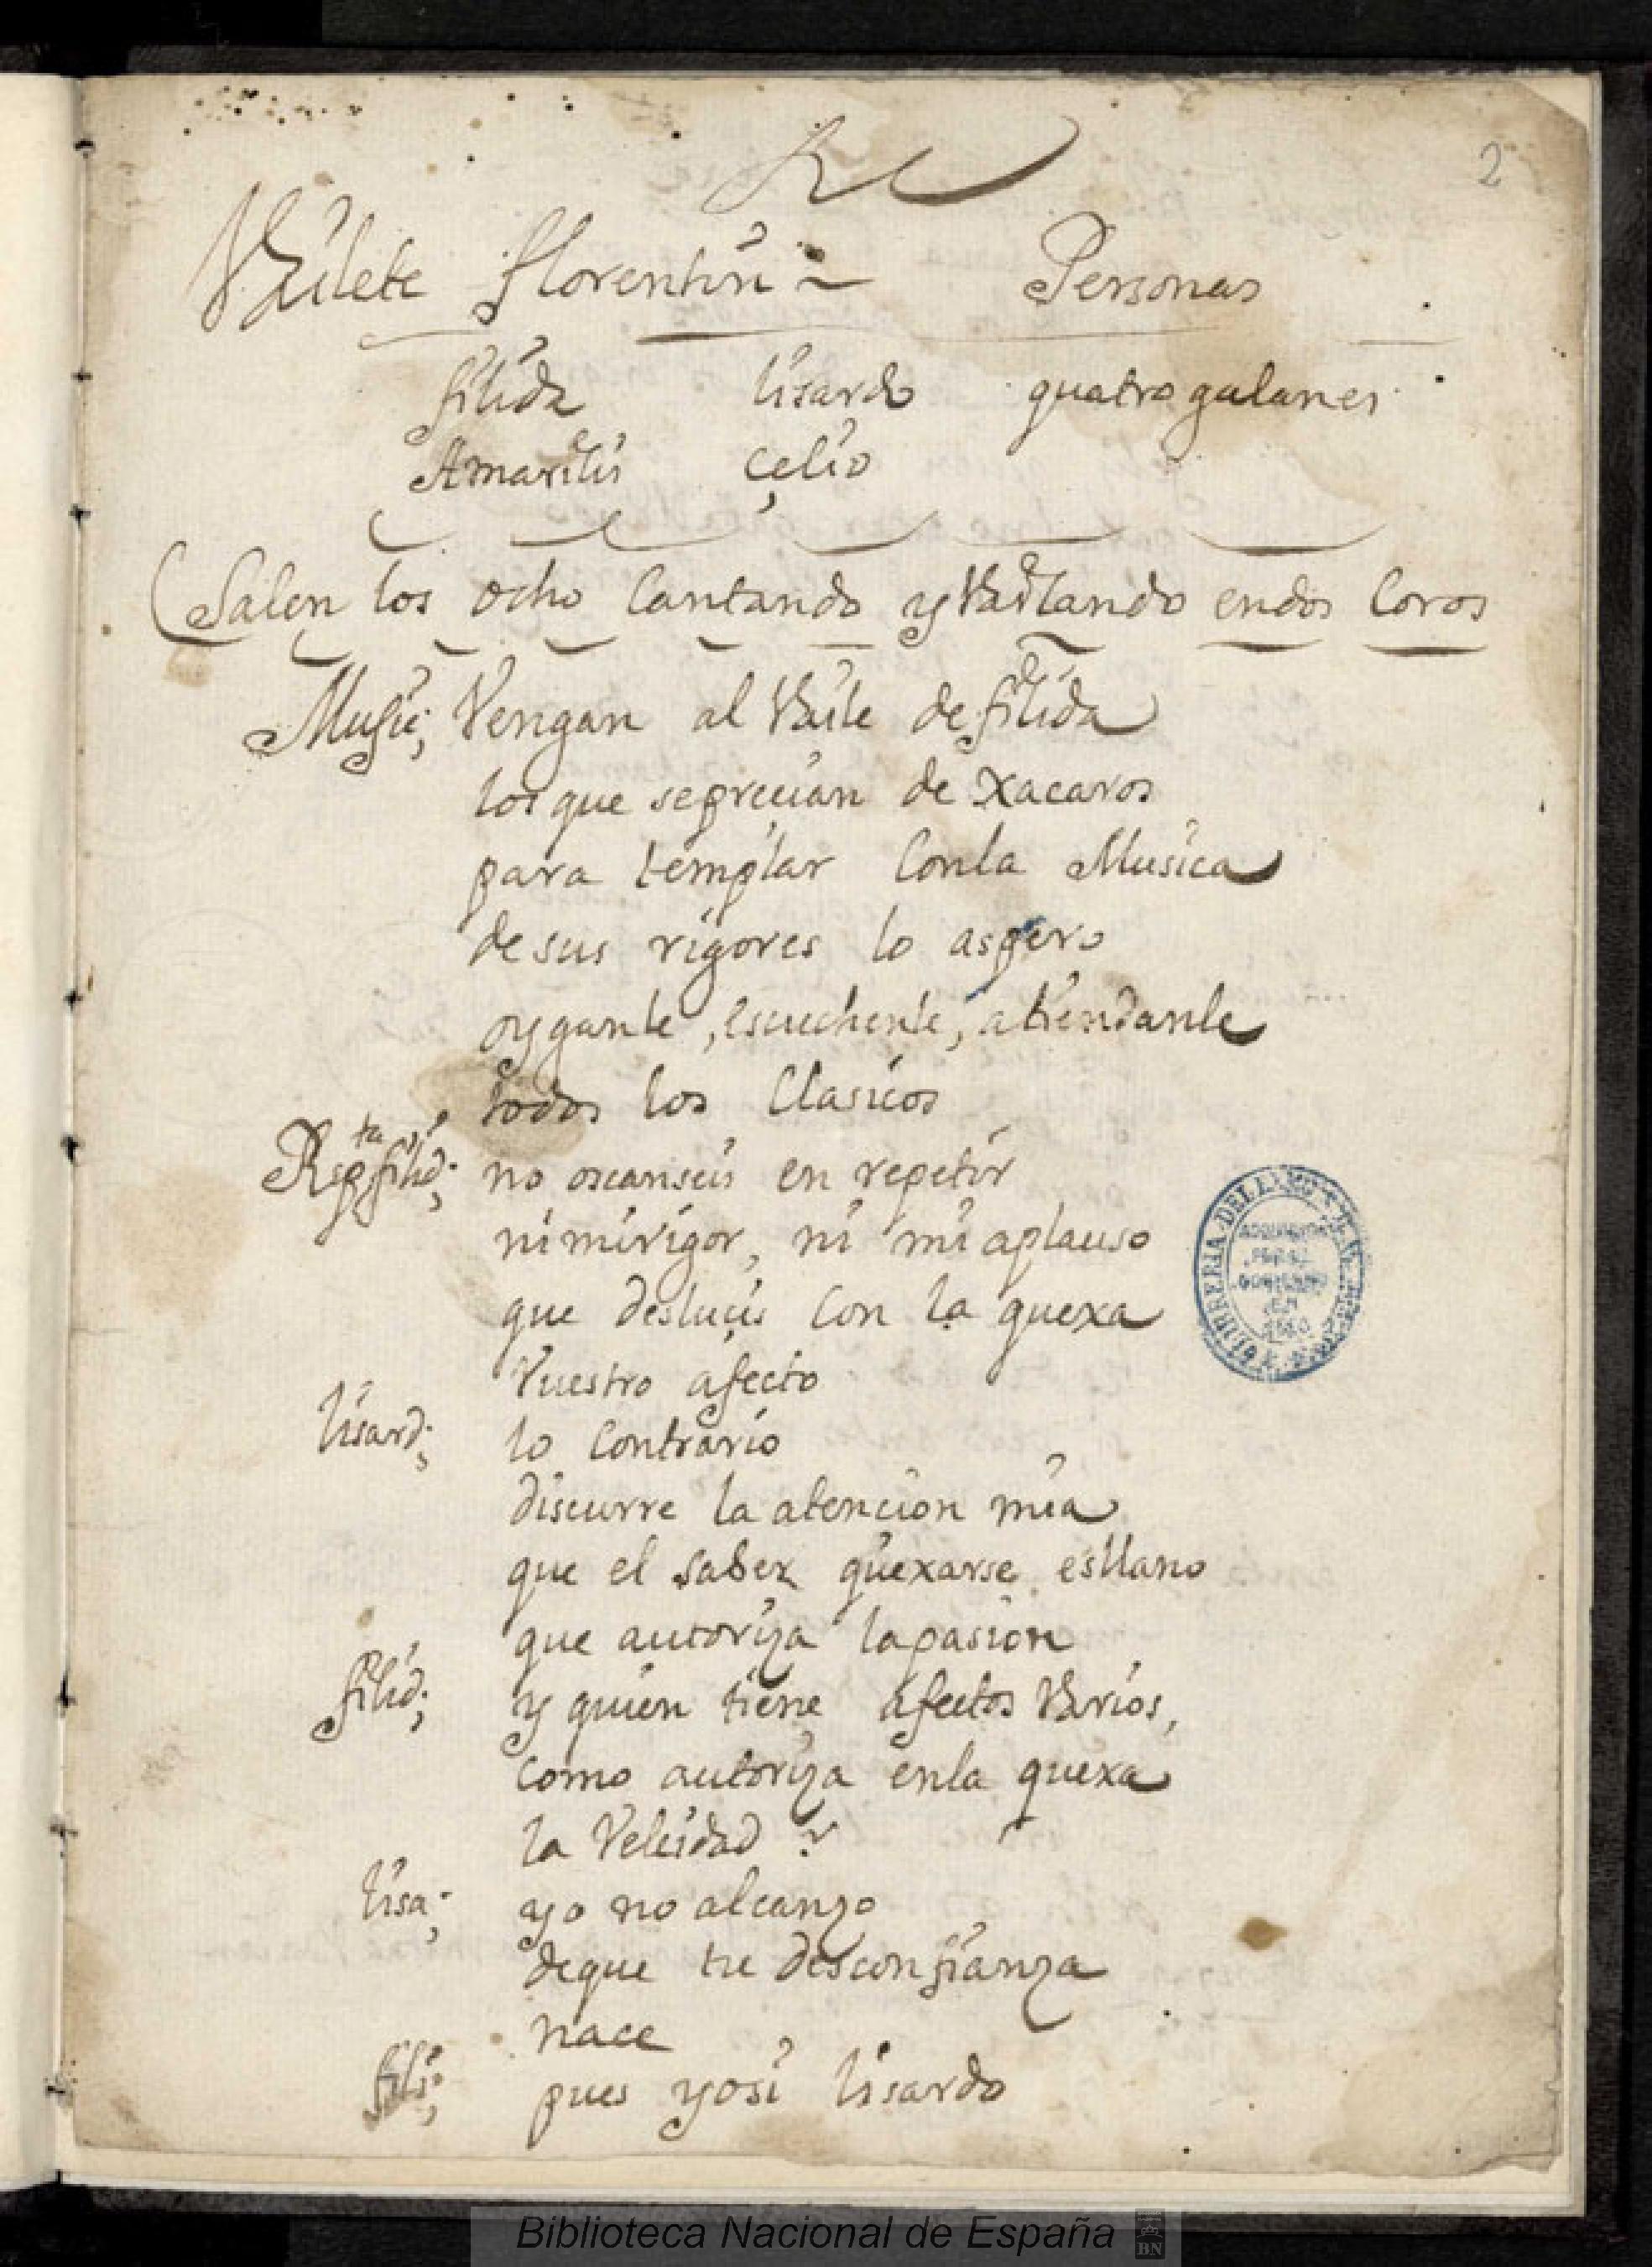 2
Vailete florentin Personas
filida lisardo quatro galanes
Amarilis çelio
Salen los ocho Cantando y Vailando endos Coros
Musi; Vengan al Vaile de filida
los que se preçian de xacaros
para templar Conla Musica
de sus rigores lo aspero
oyganle, escuchenle, atiendanle
todos los Clasicos
Rep.ta filid; no oscanseis en repetir
ni mi rigor, ni mi aplauso
que desluçis Con la quexa
Vuestro afecto
lisard; lo Contrario
discurre la atencion mia
que el saber quexarse esllano
que autoriza lapasion
filid; y quien tiene afectos Varios,
como autoriza enla quexa
la Veleidad ?
lisa; yo no alcanzo
deque tu desconfianza
nace
fili; pues yo si lisardo
LIBRERIA DEL EXC
ADQUIRIDA
POR EL
GOBIERNO
EN
Biblioteca Nacional de España
BN